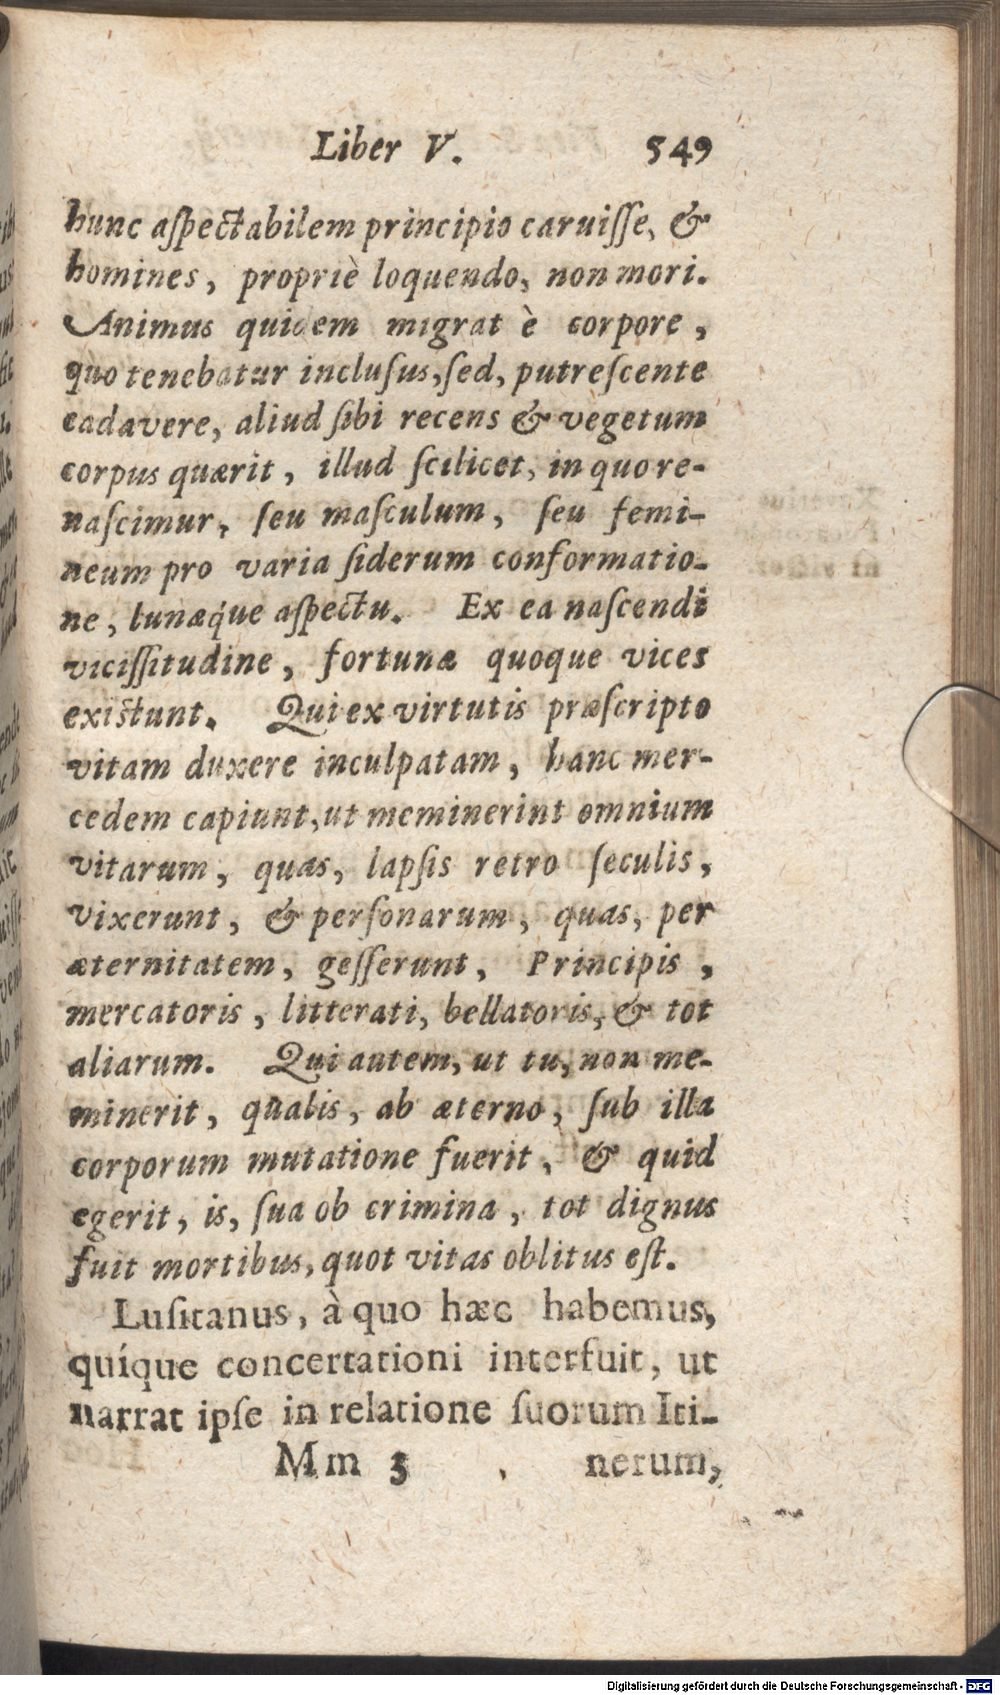 Liber V. 549
hunc aſpectabilem principio caruiſſe, &
homines, propriè loquendo, non mori.
Animus quidem migrat è corpore,
quo tenebatur incluſus, ſed, putreſcente
cadavere, aliud ſibi recens & vegetum
corpus quærit, illud ſcilicet, in quo re-
naſcimur, ſeu maſculum, ſeu femi-
neum pro varia ſiderum conformatio-
ne, lunæque aſpectu. Ex ea naſcendi
viciſſitudine, fortunæ quoque vices
existunt. Qui ex virtutis præſcripto
vitam duxere inculpatam, hanc mer-
cedem capiunt, ut meminerint omnium
vitarum, quas, lapſis retro ſeculis,
vixerunt, & perſonarum, quas, per
æternitatem, geſſerunt, Principis,
mercatoris, litterati, bellatoris, & tot
aliarum. Qui autem, ut tu, non me-
minerit, qualis, ab æterno, ſub illa
corporum mutatione fuerit, & quid
egerit, is, ſua ob crimina, tot dignus
fuit mortibus, quot vitas oblitus eſt.
Luſitanus, à quo hæc habemus,
quíque concertationi interfuit, ut
narrat ipſe in relatione ſuorum Iti-
Mm 3 nerum,
Digitalisierung gefördert durch die Deutsche Forschungsgemeinschaft - DFG